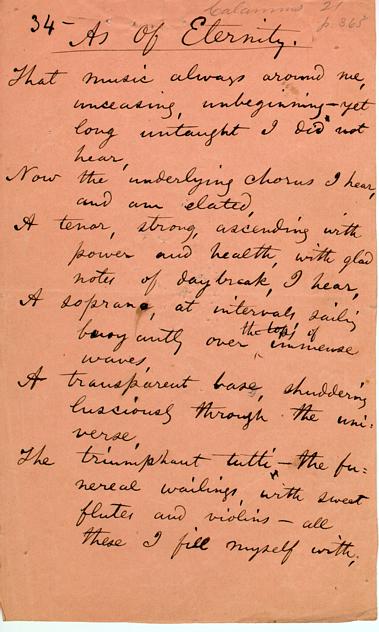 Calamus 21
p. 365
34 - As Of Eternity.
That music always around me,
unceasing, unbeginning—yet
long untaught I did not
hear,
Now the underlying chorus I hear,
and am elated,
A tenor, strong, ascending with
power and health, with glad
notes of daybreak, I hear,
A soprano, at intervals sailing
buoyantly over the tops of immense
waves,
A transparent base, shuddering
lusciously through the uni-
verse,
The triumphant tutti—the fu-
nereal wailings, with sweet
flutes and violins—all
these I fill myself with;